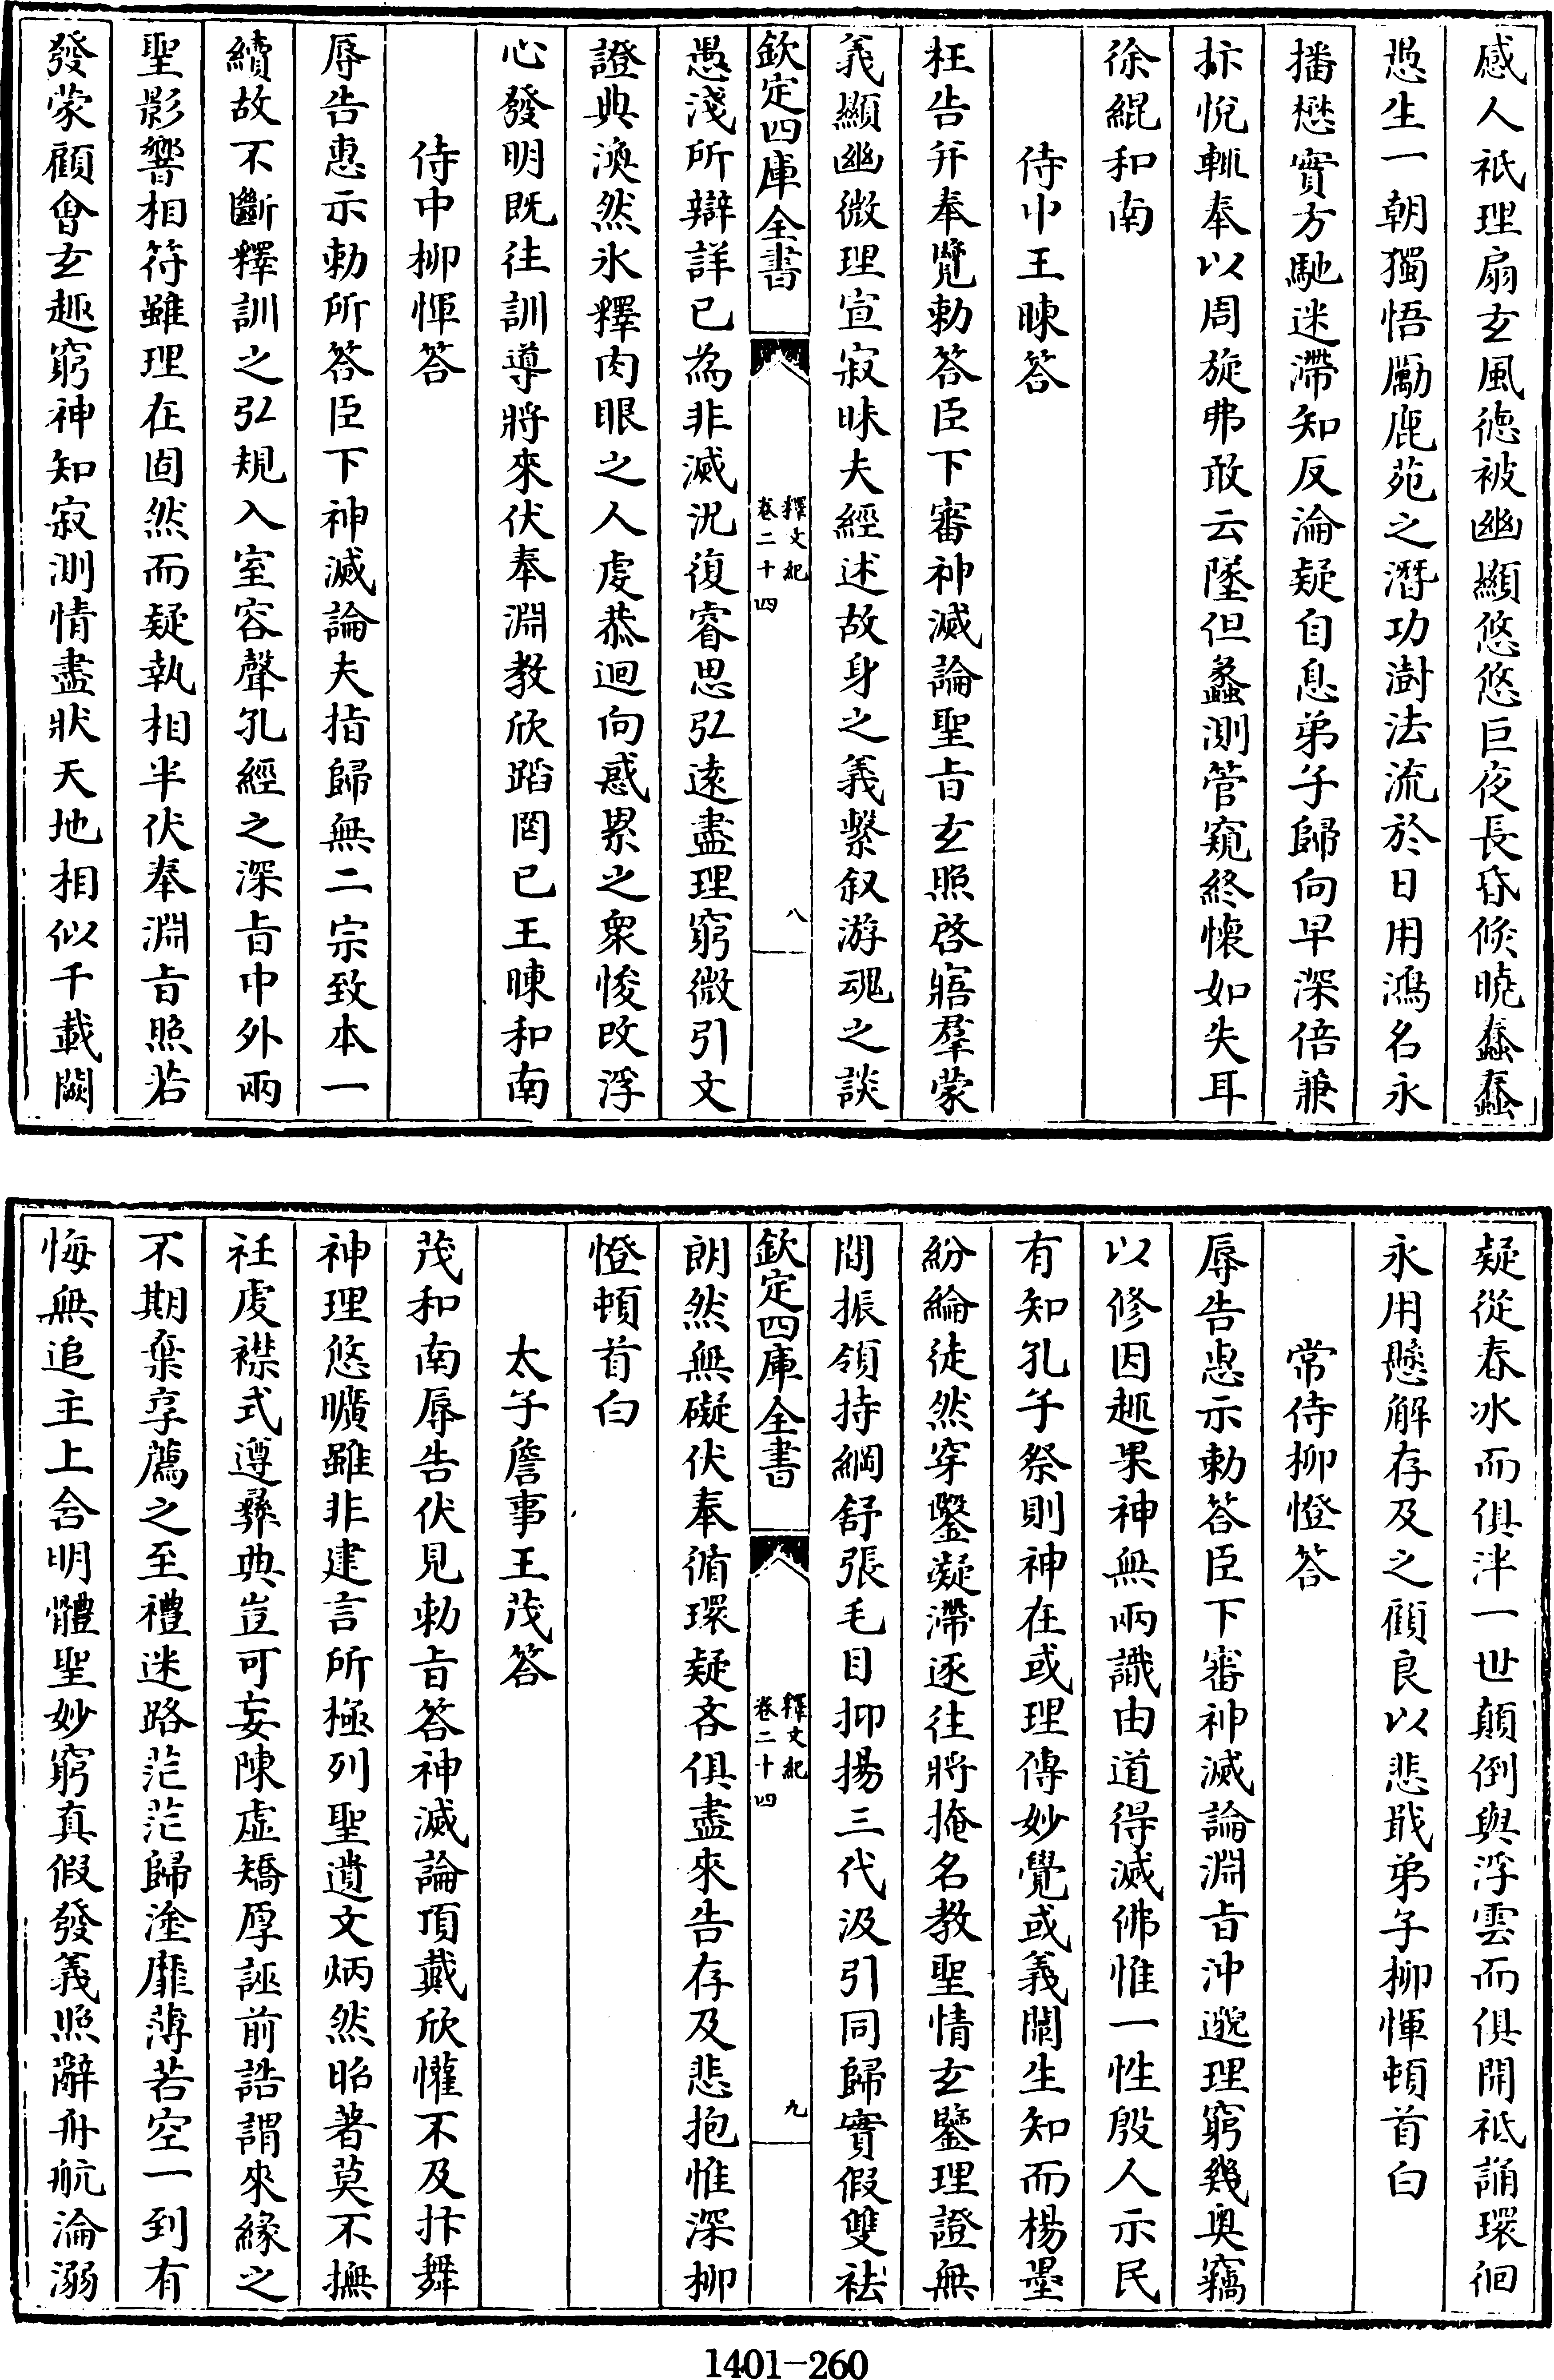 感人祇理扇玄風德被幽顯悠悠巨夜長昏倐曉蠢蠢
愚生一朝獨悟勵鹿苑之潛功澍法流於日用鴻名永
播懋實方馳迷滯知反淪疑自息弟子歸向早深倍兼
抃悅輒奉以周旋弗敢云墜但蠡測管窺終懷如失耳
徐緄和南
侍中王暕答
枉告并奉覽勅答臣下審神滅論聖旨玄照啓寤羣蒙
義顯幽微理宣寂昧夫經述故身之義繫叙游魂之談
欽定四庫全書
釋文紀
卷二十四
八
愚淺所辯詳已為非滅況復睿思弘遠盡理窮微引文
證典渙然氷釋肉眼之人虔恭迴向惑累之衆悛改浮
心發明既往訓導將來伏奉淵教欣蹈罔已王暕和南
侍中柳惲答
辱告惠示勅所答臣下神滅論夫指歸無二宗致本一
續故不斷釋訓之弘規入室容聲孔經之深旨中外兩
聖影響相符雖理在固然而疑執相半伏奉淵旨照若
發蒙顧會玄趣窮神知寂測情盡狀天地相似千載闕
疑從春冰而俱泮一世顛倒與浮雲而俱開祗誦環徊
永用懸解存及之顧良以悲戢弟子柳惲頓首白
常侍柳憕答
辱告惠示勅答臣下審神滅論淵旨沖邈理窮幾奥竊
以修因趣果神無兩識由道得滅佛惟一性殷人示民
有知孔子祭則神在或理傳妙覺或義闡生知而楊墨
紛綸徒然穿鑿凝滯逐往將掩名教聖情玄鑒理證無
間振領持綱舒張毛目抑揚三代汲引同歸實假雙袪
欽定四庫全書
釋文紀
卷二十四
九
朗然無礙伏奉循環疑吝俱盡來告存及悲抱惟深柳
憕頓首白
太子詹事王茂答
茂和南辱告伏見勅旨答神滅論頂戴欣懽不及抃舞
神理悠曠雖非建言所極列聖遺文炳然昭著莫不撫
衽虔襟式遵彞典豈可妄陳虚矯厚誣前誥謂來緣之
不期棄享薦之至禮迷路茫茫歸塗靡薄若空一到有
悔無追主上含明體聖妙窮真假發義照辭舟航淪溺
1401-260